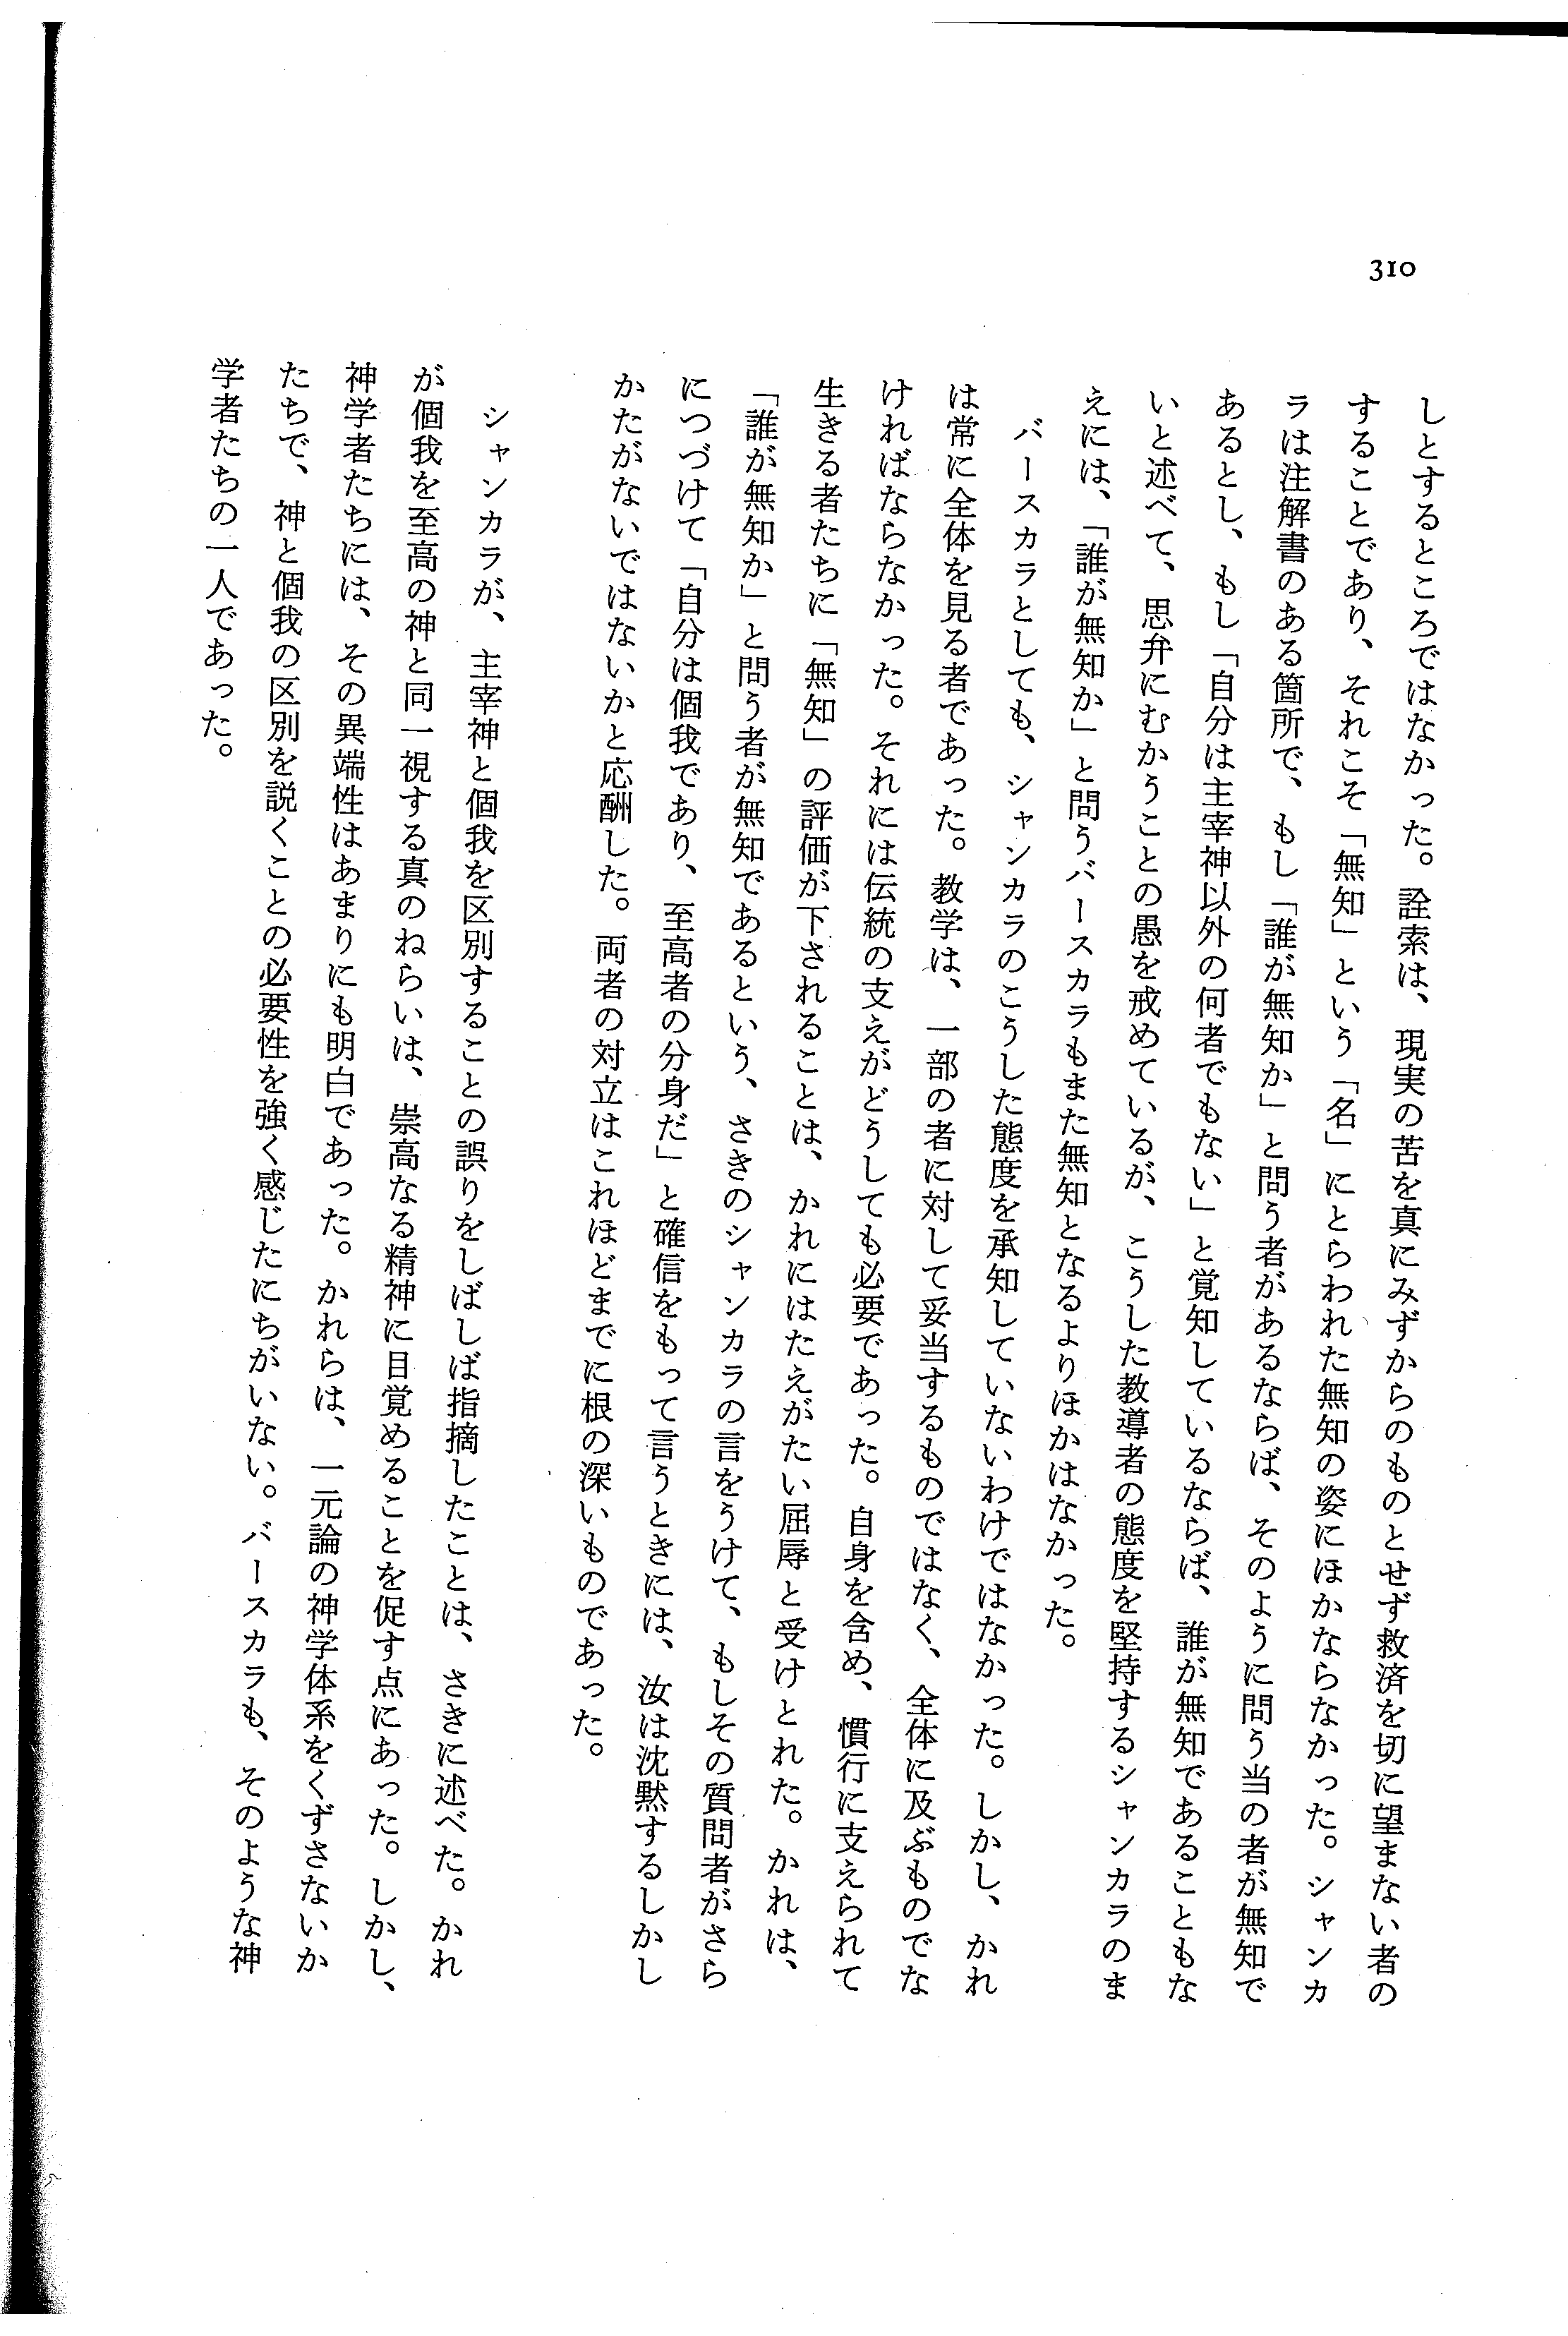 310
しとするところではなかった。詮索は、現実の苦を真にみずからのものとせず救済を切に望まない者の
することであり、それこそ「無知」という「名」にとらわれた無知の姿にほかならなかった。シャンカ
ラは注解書のある箇所で、もし「誰が無知か」と問う者があるならば、そのように問う当の者が無知で
あるとし、もし「自分は主宰神以外の何者でもない」と覚知しているならば、誰が無知であることもな
いと述べて、思弁にむかうことの愚を戒めているが、こうした教導者の態度を堅持するシャンカラのま
えには、「誰が無知か」と問うバースカラもまた無知となるよりほかはなかった。
バースカラとしても、シャンカラのこうした態度を承知していないわけではなかった。しかし、かれ
は常に全体を見る者であった。教学は、一部の者に対して妥当するものではなく、全体に及ぶものでな
ければならなかった。それには伝統の支えがどうしても必要であった。自身を含め、慣行に支えられて
生きる者たちに「無知」の評価が下されることは、かれにはたえがたい屈辱と受けとれた。かれは、
「誰が無知か」と問う者が無知であるという、さきのシャンカラの言をうけて、もしその質問者がさら
につづけて「自分は個我であり、至高者の分身だ」と確信をもって言うときには、汝は沈黙するしかし
かたがないではないかと応酬した。両者の対立はこれほどまでに根の深いものであった。
シャンカラが、主宰神と個我を区別することの誤りをしばしば指摘したことは、さきに述べた。かれ
が個我を至高の神と同一視する真のねらいは、崇高なる精神に目覚めることを促す点にあった。しかし、
神学者たちには、その異端性はあまりにも明白であった。かれらは、一元論の神学体系をくずさないか
たちで、神と個我の区別を説くことの必要性を強く感じたにちがいない。バースカラも、そのような神
学者たちの一人であった。